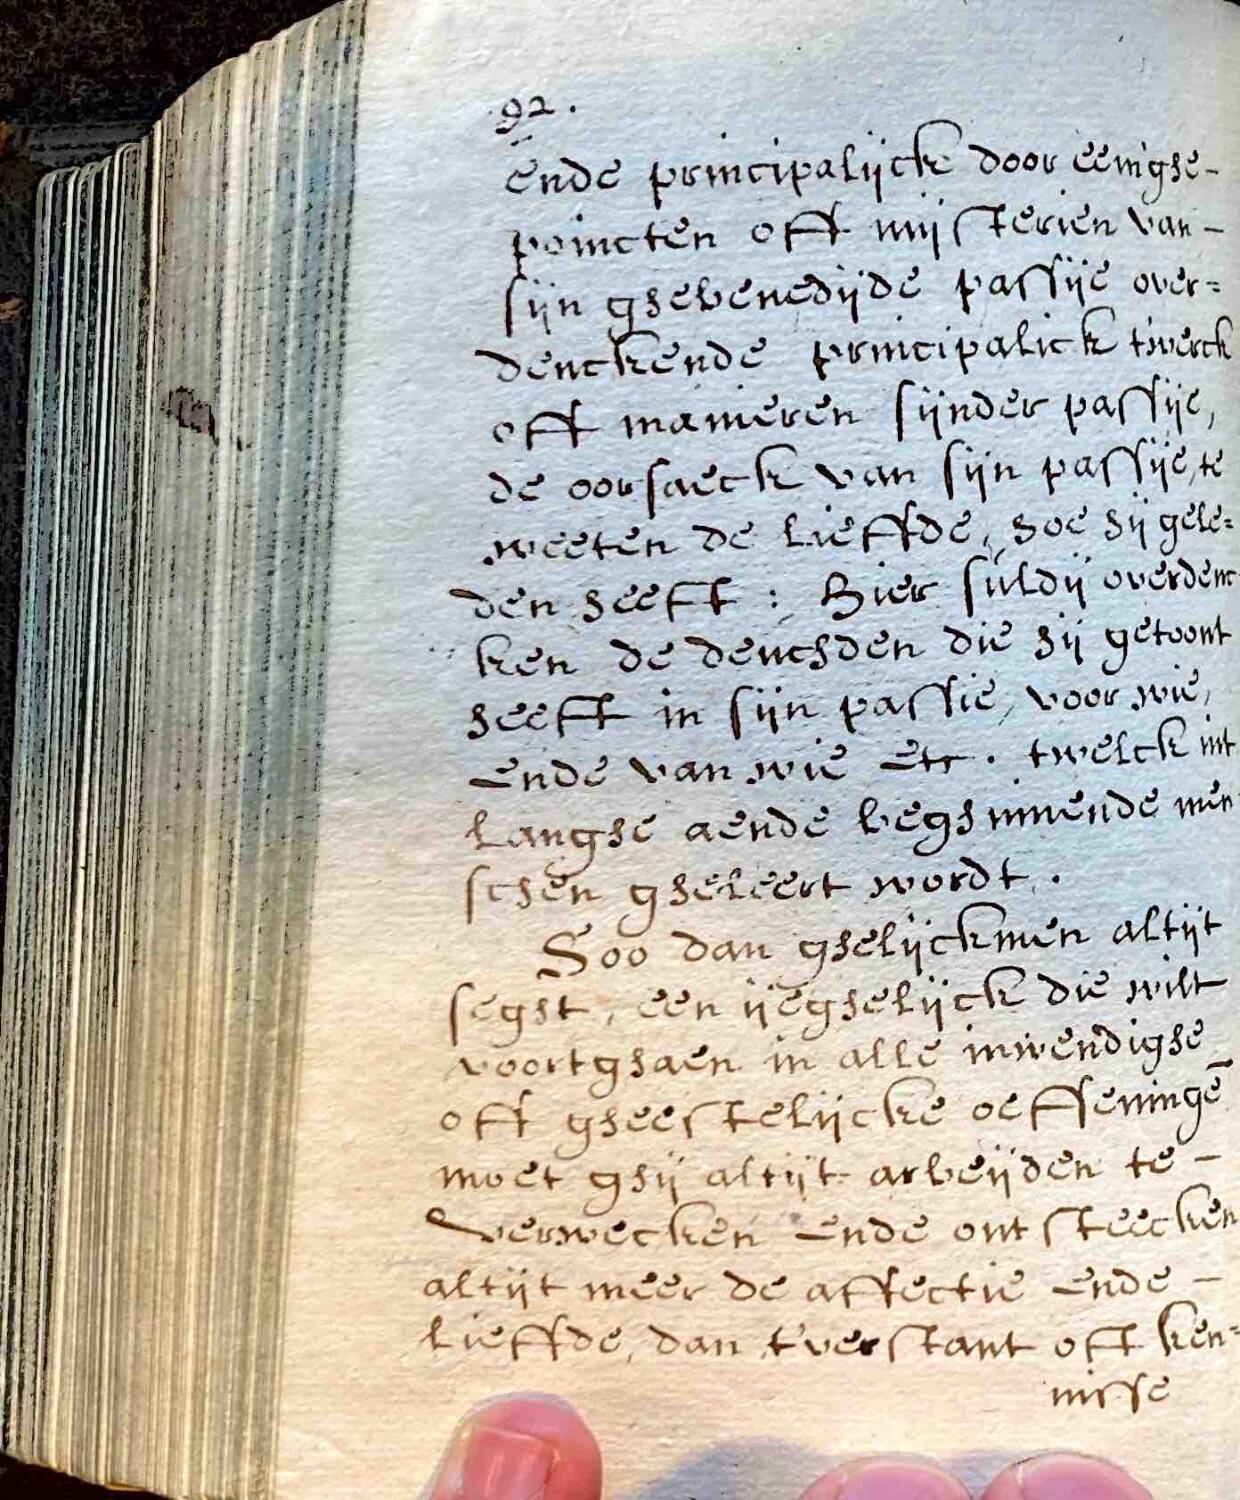 92.
ende principalijck door eenighe-
poincten oft mijsterien van-
sijn ghebenedijde passije over=
denckende principalick t'werck
oft manieren sijnder passije,
de oorsaeck van sijn passije, te
weeten de lieffde, hoe hij gele=
den heeft: Hier suldij overdenc
ken de deuchden die hij getoont
heeft in sijn passie, voor wie,
ende van wie etc. twelck int
langhe aende beghinnende men
schen gheleert wordt.
Soo dan ghelijckmen altijt
seght, een ijeghelijck die wilt
voortghaen in alle inwendighe
oft gheestelijcke oeffeningē
moet ghij altijt arbeijden te-
verwecken ende ontsteecken
altijt meer de affectie ende-
lieffde, dan t'verstant oft ken=
nisse